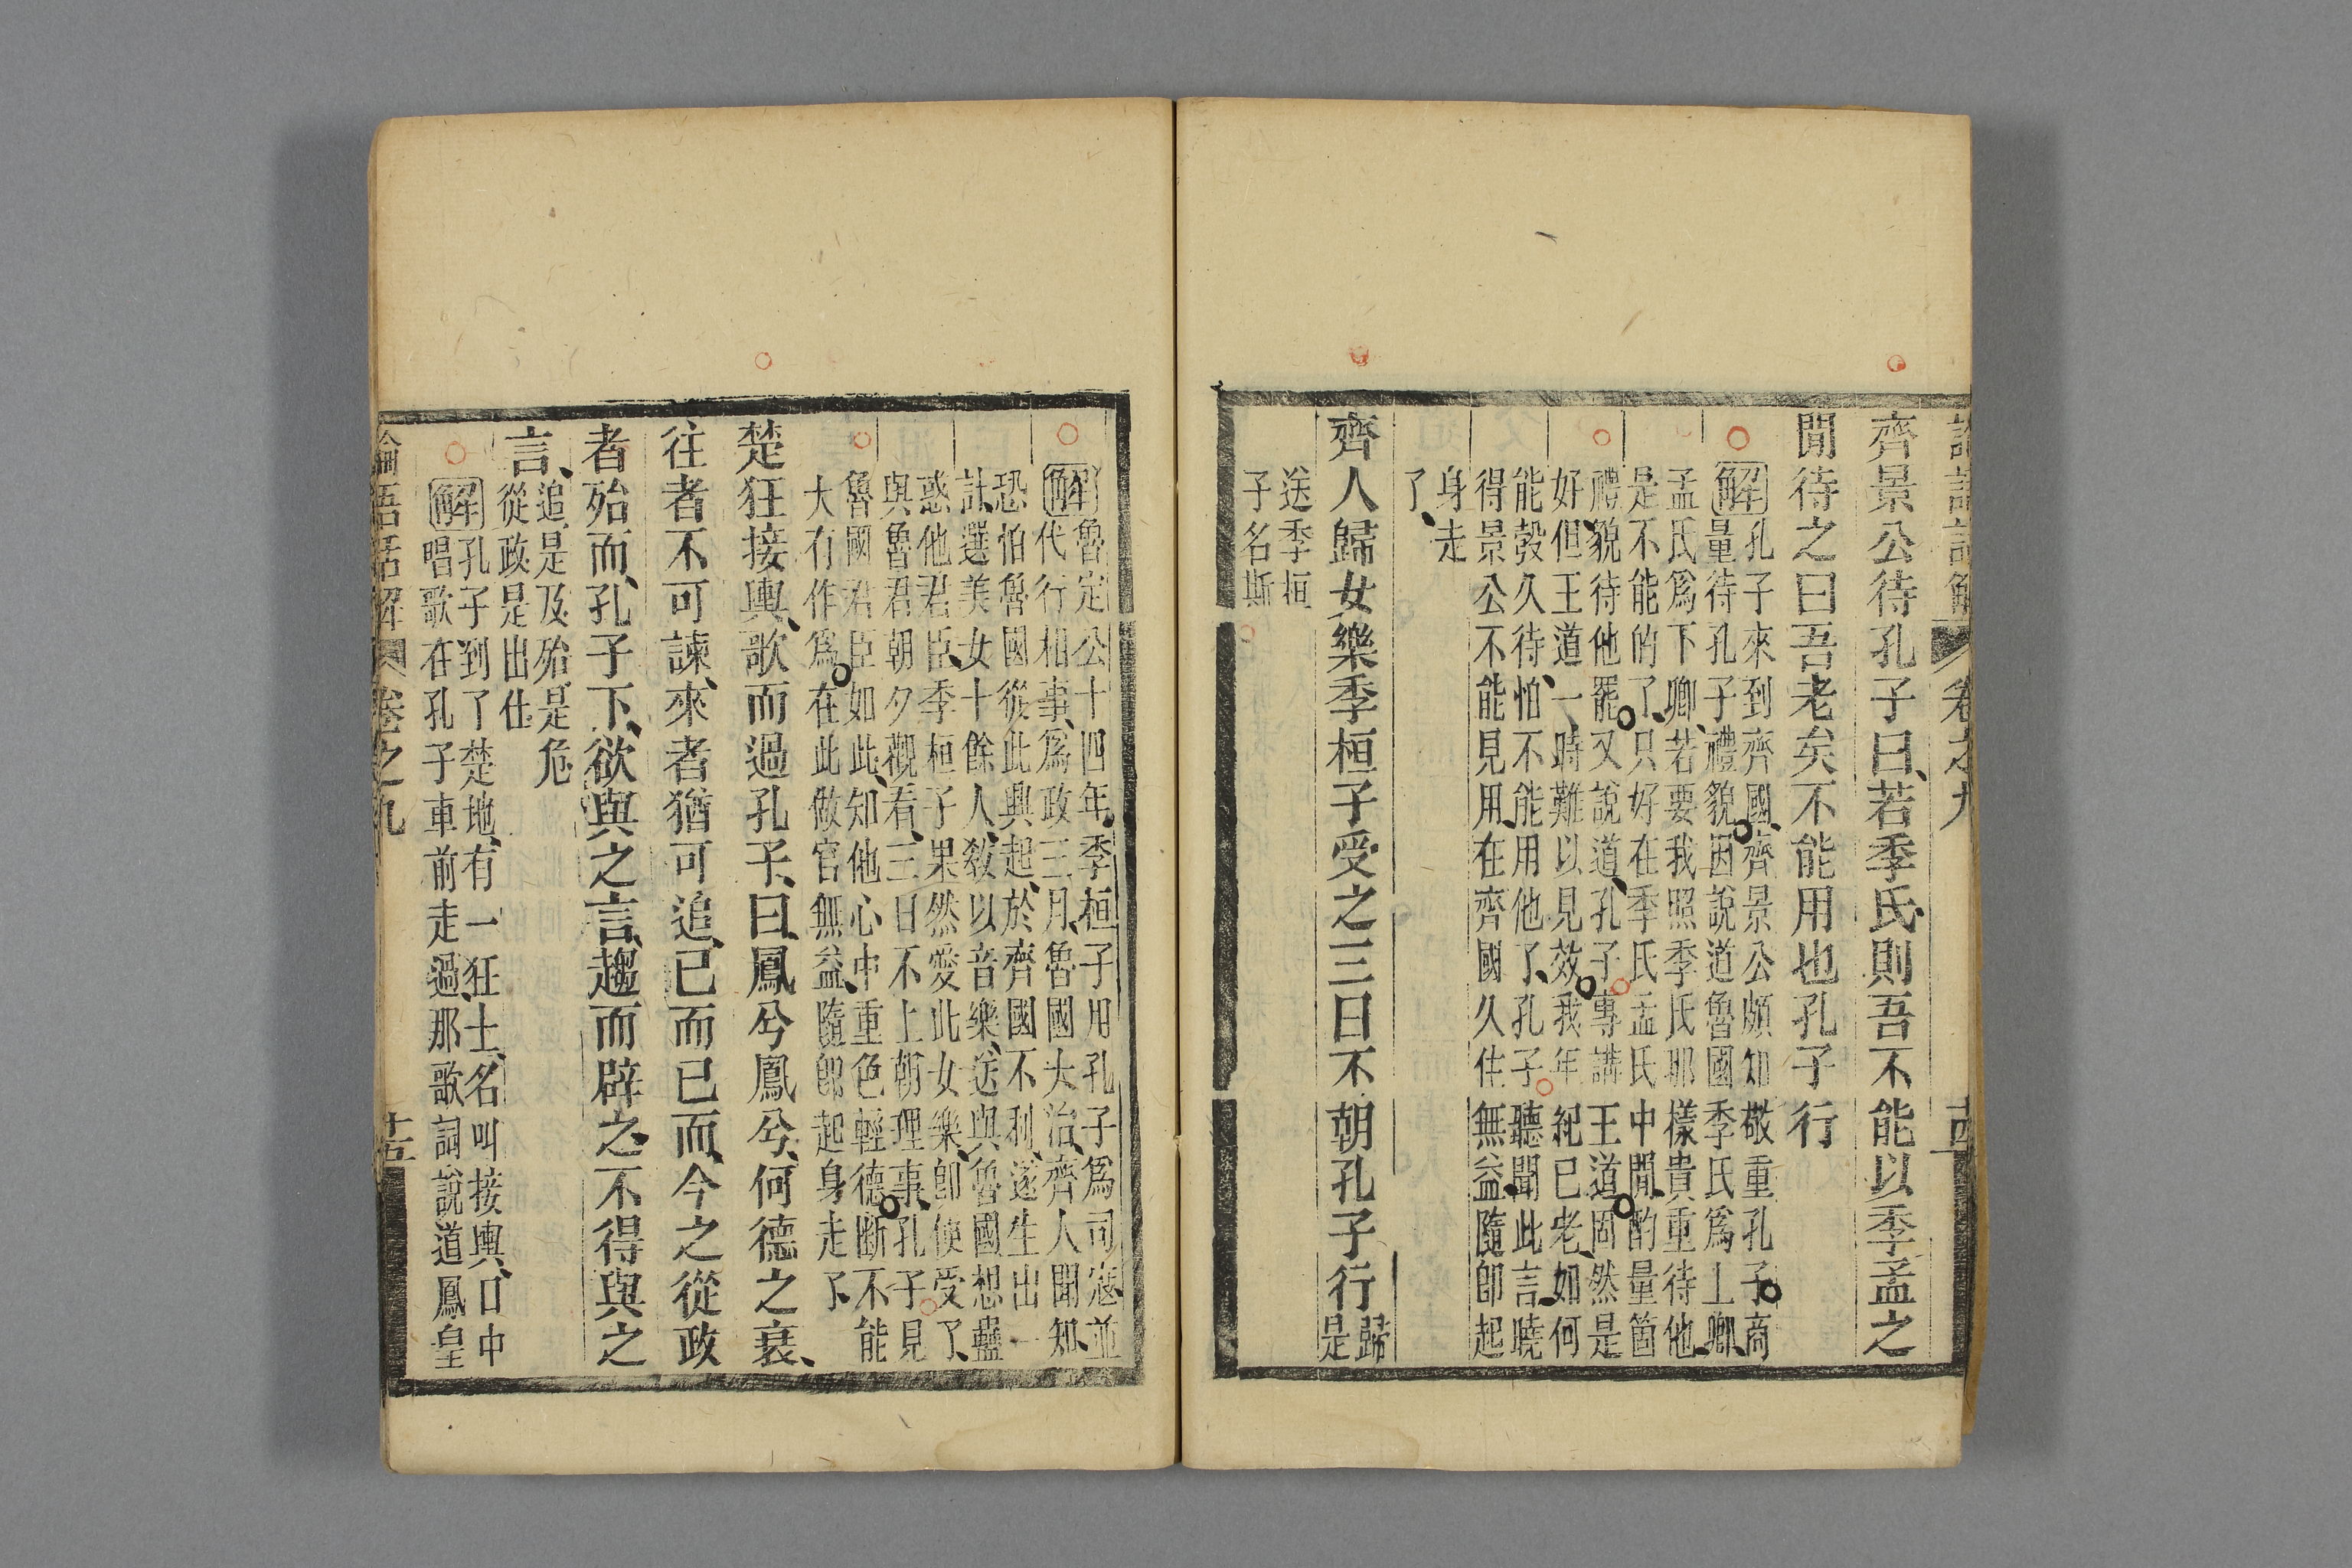 論語話解 卷之九 十四
齊景公待孔子曰、若季氏則吾不能以季孟之
閒待之曰吾老矣不能用也孔子行
解孔子來到齊國、齊景公頗知敬重孔子商
量待孔子禮貌因說道魯國季氏爲上卿、
孟氏爲下卿、若要我照季氏那樣貴重待他、
是不能的了、只好在季氏孟氏中閒、酌量箇
禮貌待他罷又說道、孔子專講王道固然是
好、但王道一時難以見效我年紀已老、如何
能彀久待、怕不能用他了、孔子聽聞此言、曉
得景公不能見用、在齊國久住無益、隨卽起
身走
了、
齊人歸女樂季桓子受之三日不朝孔子行
歸
是
送季桓
子名斯
解魯定公十四年、季桓子用孔子爲司寇、並
代行相事、爲政三月、魯國大治、齊人聞知、
恐怕魯國從此興起、於齊國不利、遂生出一
計、選美女十餘人、教以音樂、送與魯國想蠱
惑他君臣、季桓子果然愛此女樂、卽使受了、
與魯君朝夕觀看、三日不上朝理事、孔子見
魯國君臣如此、知他心中重色輕德斷不能
大有作爲在此做官無益、隨卽起身走了、
楚狂接輿、歌而過孔子、曰、鳳兮鳳兮、何德之衰、
往者不可諫、來者猶可追、已而已而、今之從政
者殆而、孔子下、欲與之言、趨而辟之、不得與之
言、
追、是及、殆、是危、
從政、是出仕、
解孔子到了楚地、有一狂士、名叫接輿、口中
唱歌在孔子車前走過、那歌詞說道鳳皇
論語話解 卷之九 十五